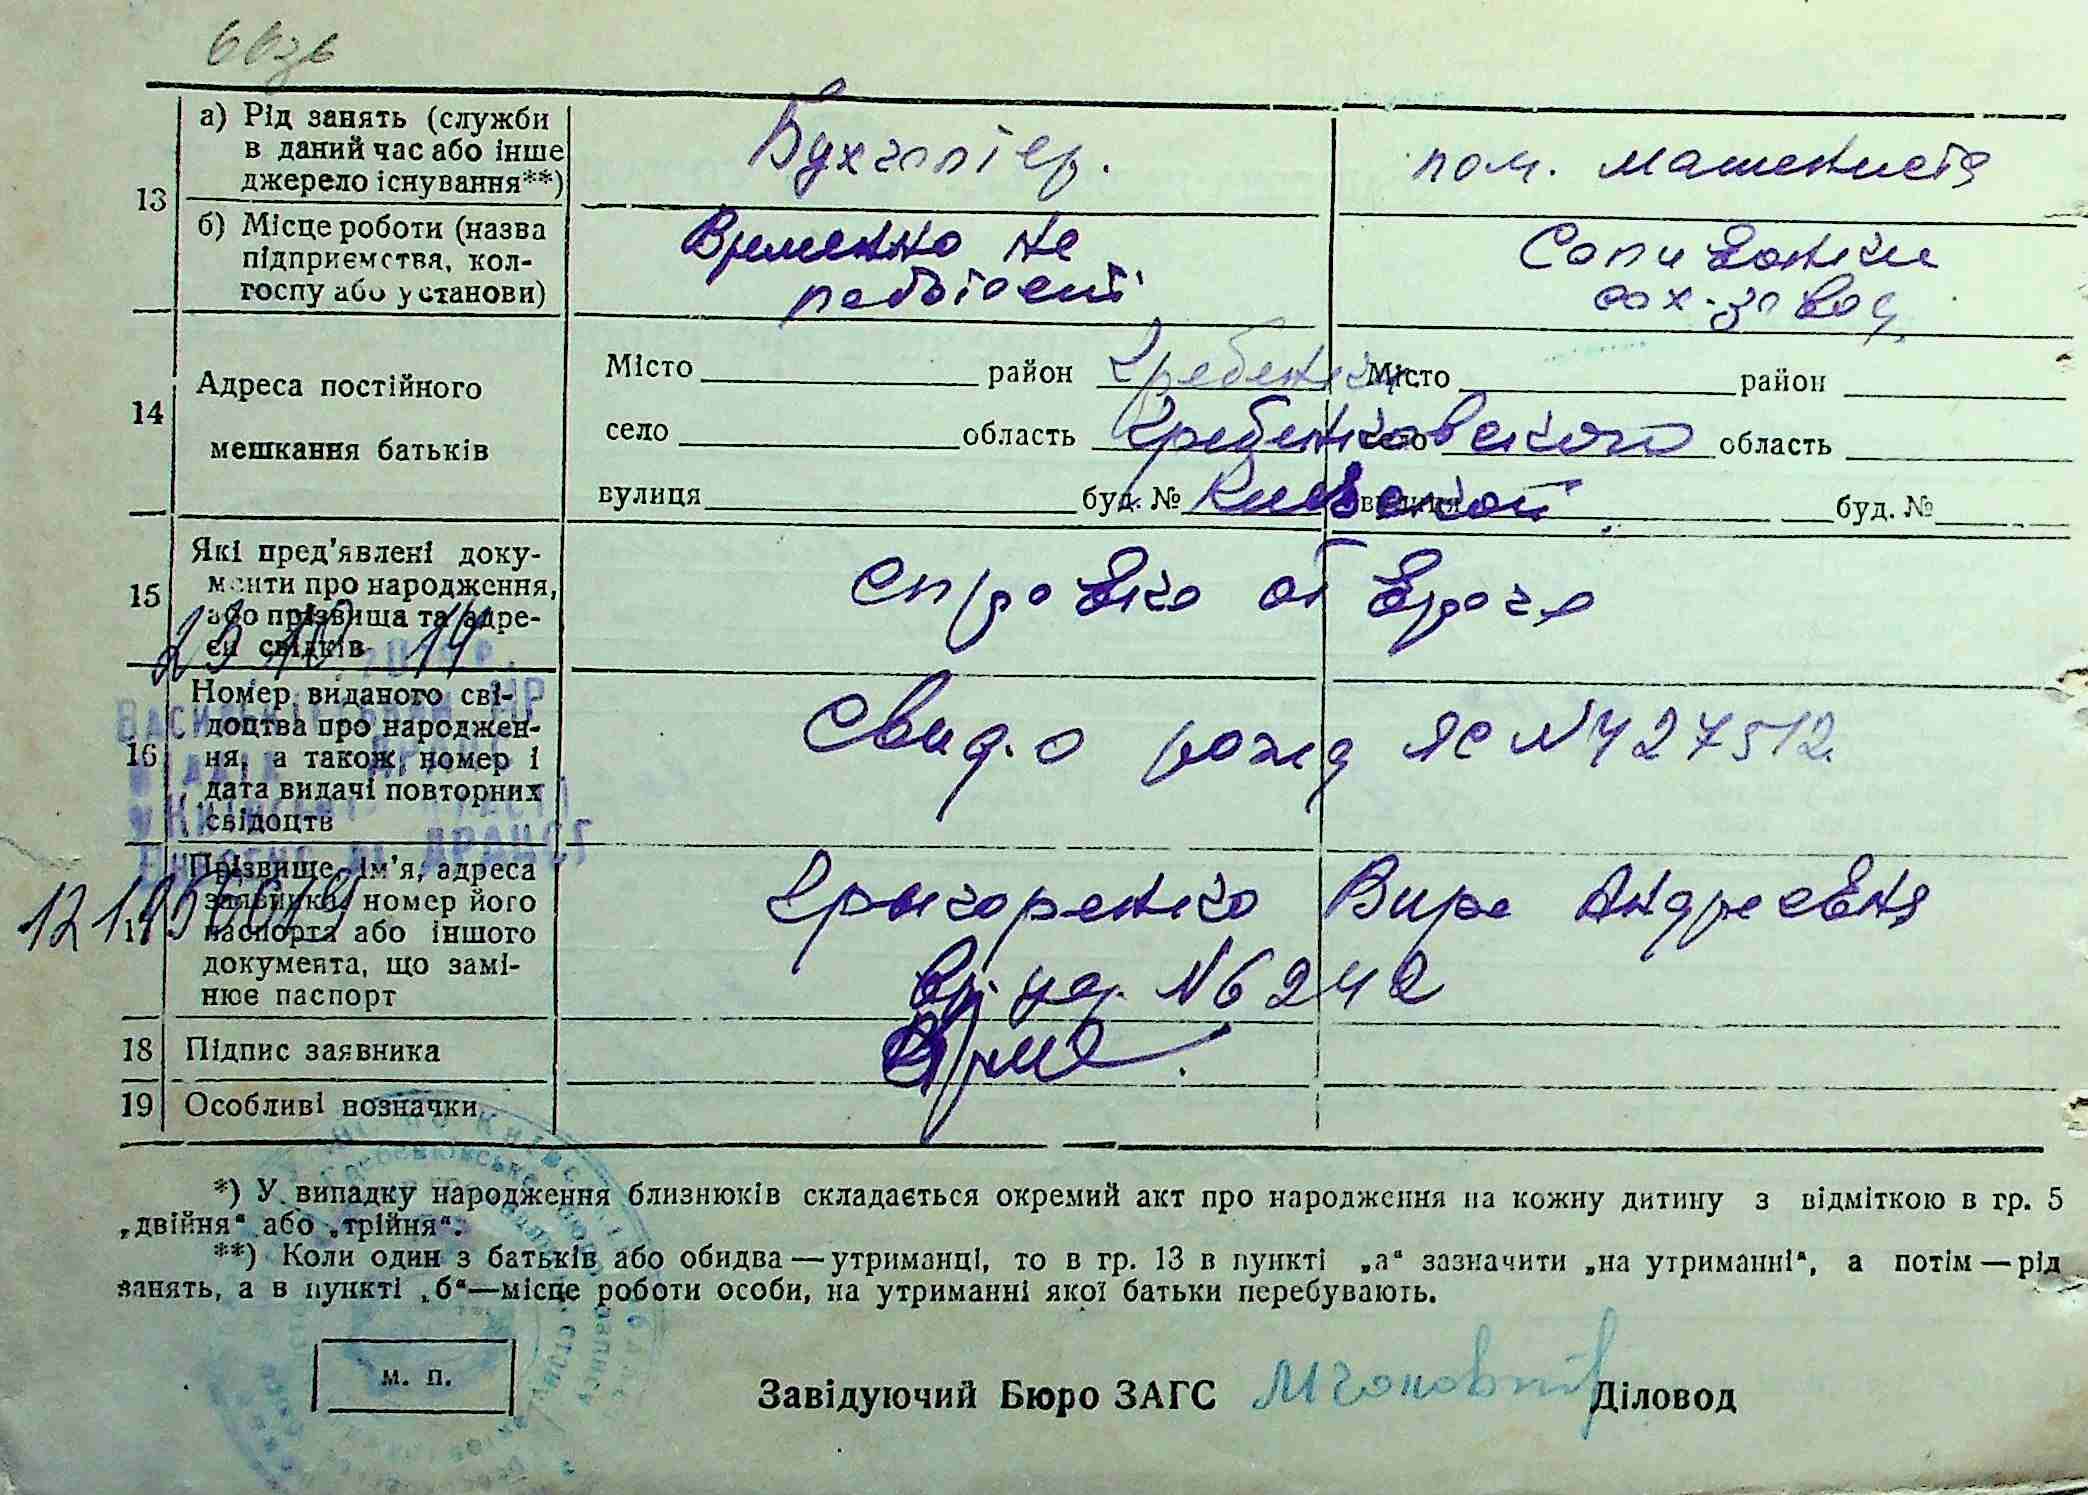 а) Рід занять (служби
в даний час або інше
джерело існування**)
Бухгалтер.
пом. машениста
13
б) Місце роботи (назва
підприємства, кол-
госпу або установи)
Временно не
работает
Саливонки
сах. завод
14
Адреса постійного
мешкання батьків
Місто район Гребенки Місто район
село область Гребенковского область
вулиця буд. № Киевской буд. №
15
Які пред'явлені доку-
менти про народження,
або прізвища та адре-
си свідків
справка от врача
16
Номер виданого сві-
доцтва про народжен-
ня, а також, номер і
дата видачі повторних
свідоцтв
Свид. о рожд ЯС № 427512.
17
Прізвище, ім'я, адреса
заявника, номер його
паспорта або іншого
документа, що замі-
нює паспорт
Грыгоренко Вира Андреевня
№ 6242
18 Підпис заявника
19 Особливі возначки
*) У випадку народження близнюків складається окремий акт про народження на кожну дитину з відміткою в гр. 5
„двійня“ або „трійня“.
**) Коли один з батьків або обидва — утриманці, то в гр. 13 в пункті „а“ зазначити „на утриманні“, а потім — рід
занять, а в пункті „б“—місце роботи особи, на утриманні якої батьки перебувають.
м. п.
Завідуючий Бюро ЗАГС Діловод